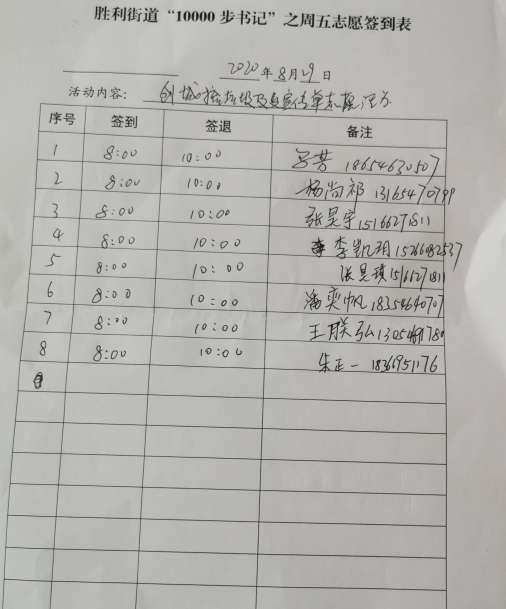 胜利街道“10000步书记”之周五志愿签到表
2020年8月29日
活动内容：创城捡垃圾及宣传单志愿活动
序号 签到 签退 备注
1 8:00 10:00 宫芸 18654630507
2 8:00 10:00 杨尚祁 13165470799
3 8:00 10:00 张昊宇 15166271811
4 8:00 10:00 李凯翔
5 8:00 10:00 15166271811
6 8:00 10:00 潘奕帆 18354640707
7 8:00 10:00 王联弘
8 8:00 10:00 朱正一 18366951176
9